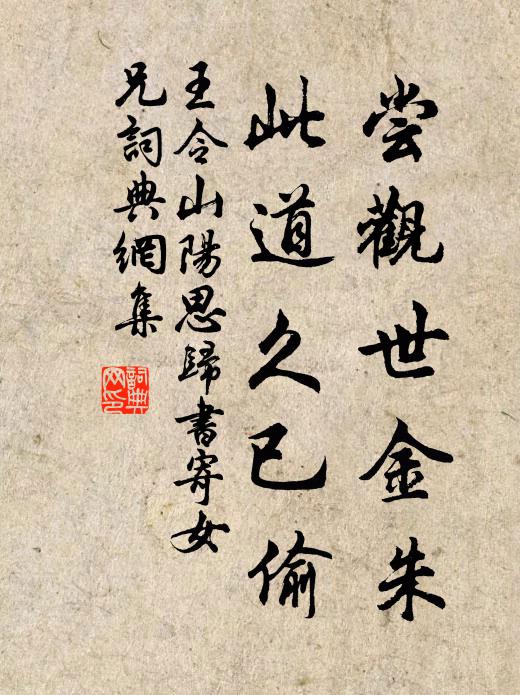 尝觀世金朱
此道久已偷
王令山陽思歸書寄女
兄詞典網集
詞典
网印